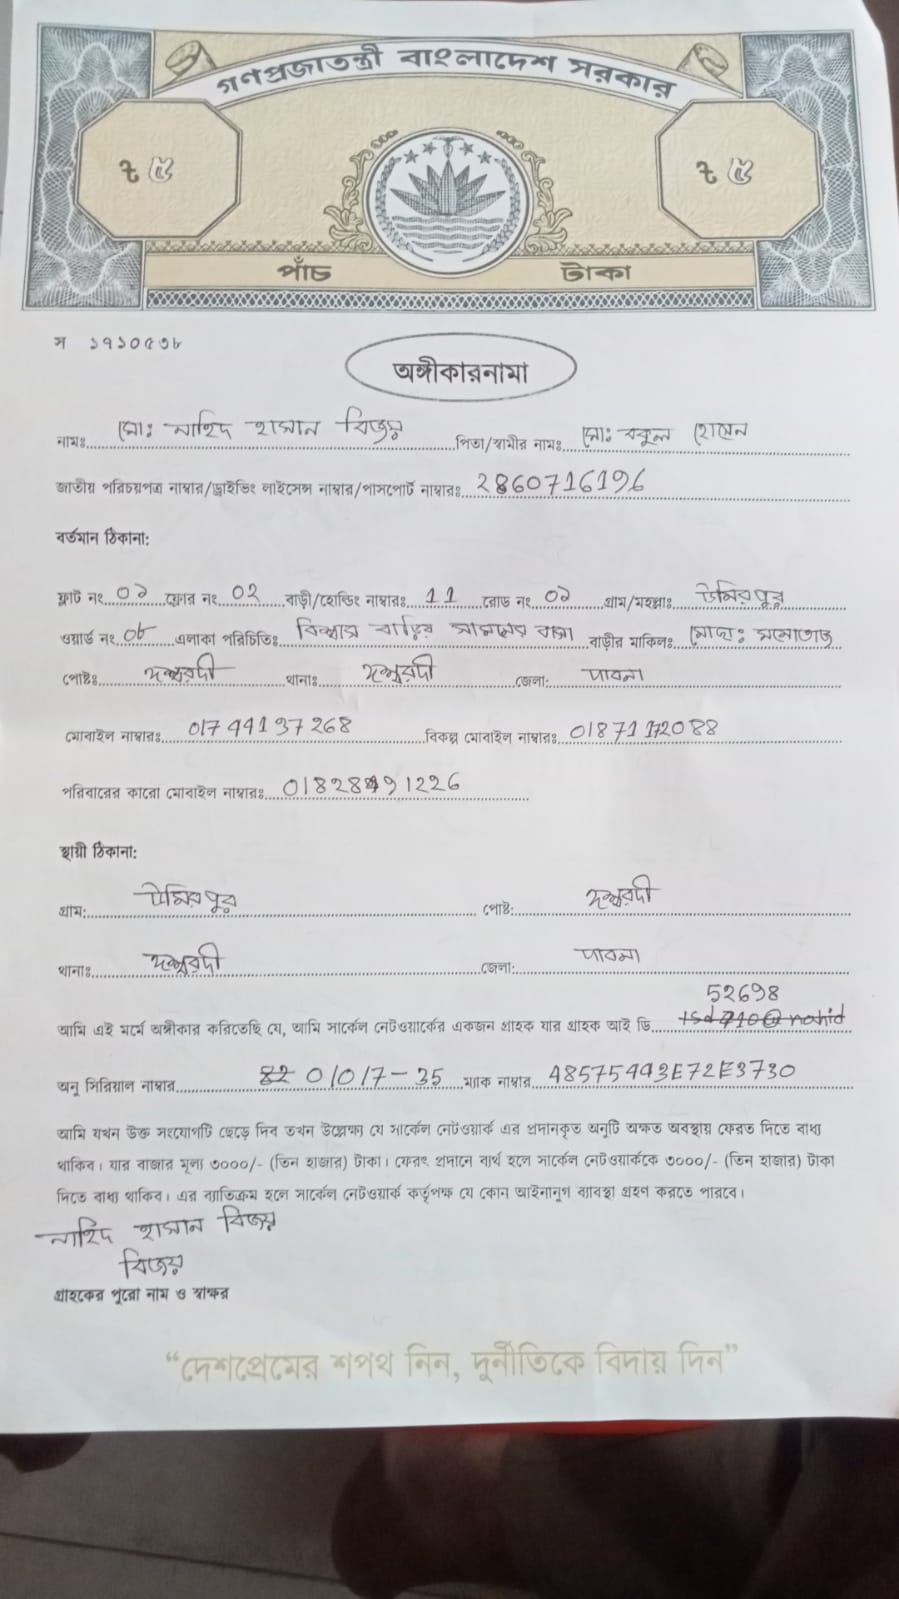 গণপ্রজাতন্ত্রী বাংলাদেশ সরকার
৳ ৫ ৳ ৫
পাঁচ টাকা
স ১৭১০৫৩৮
অঙ্গীকারনামা
নামঃ মো: নাহিদ হাসান বিজয় পিতা/স্বামীর নামঃ মো: বকুল হোসেন
জাতীয় পরিচয়পত্র নাম্বার/ড্রাইভিং লাইসেন্স নাম্বার/পাসপোর্ট নাম্বারঃ 2860716196
বর্তমান ঠিকানা:
ফ্লাট নং ০১ ফ্লোর নং ০২ বাড়ী/হোল্ডিং নাম্বারঃ 11 রোড নং ০১ গ্রাম/মহল্লাঃ উমিরপুর
ওয়ার্ড নং ০৮ এলাকা পরিচিতিঃ বিশ্বাস বাড়ির সামনের বাসা বাড়ীর মালিকঃ মোছা:
পোষ্টঃ ঈশ্বরদী থানাঃ ঈশ্বরদী জেলা: পাবনা
মোবাইল নাম্বারঃ 01744137268 বিকল্প মোবাইল নাম্বারঃ 01871172088
পরিবারের কারো মোবাইল নাম্বারঃ
স্থায়ী ঠিকানা:
গ্রাম: উমিরপুর পোষ্ট: ঈশ্বরদী
থানাঃ ঈশ্বরদী জেলা: পাবনা
52698
আমি এই মর্মে অঙ্গীকার করিতেছি যে, আমি সার্কেল নেটওয়ার্কের একজন গ্রাহক যার গ্রাহক আই ডি
অনু সিরিয়াল নাম্বার 01017-35 ম্যাক নাম্বার 48575443E72E3730
আমি যখন উক্ত সংযোগটি ছেড়ে দিব তখন উল্লেক্ষ্য যে সার্কেল নেটওয়ার্ক এর প্রদানকৃত অনুটি অক্ষত অবস্থায় ফেরত দিতে বাধ্য
থাকিব। যার বাজার মূল্য ৩০০০/- (তিন হাজার) টাকা। ফেরৎ প্রদানে ব্যর্থ হলে সার্কেল নেটওয়ার্ককে ৩০০০/- (তিন হাজার) টাকা
দিতে বাধ্য থাকিব। এর ব্যাতিক্রম হলে সার্কেল নেটওয়ার্ক কর্তৃপক্ষ যে কোন আইনানুগ ব্যাবস্থা গ্রহণ করতে পারবে।
নাহিদ হাসান বিজয়
বিজয়
গ্রাহকের পুরো নাম ও স্বাক্ষর
“দেশপ্রেমের শপথ নিন, দুর্নীতিকে বিদায় দিন”